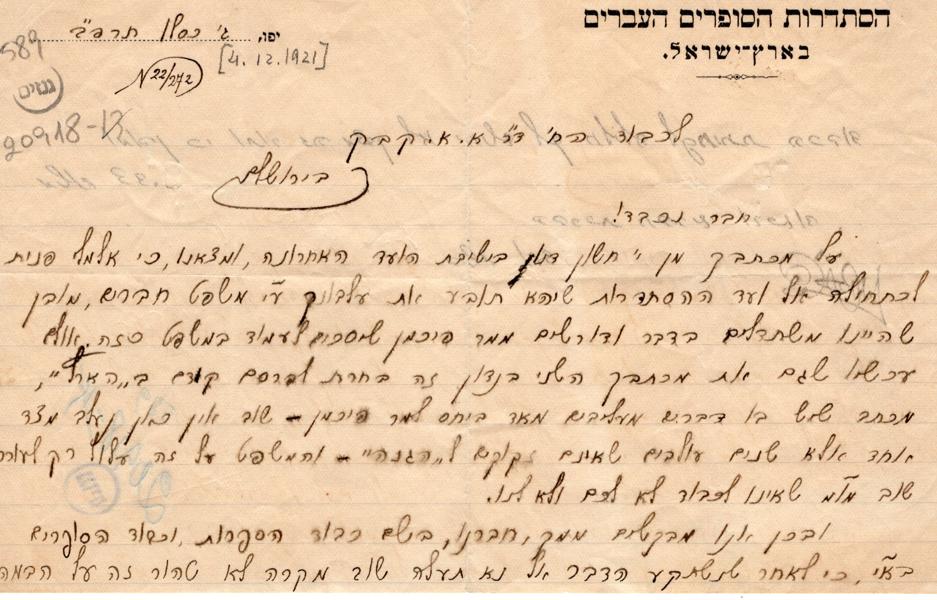 הסתדרות הסופרים העברים
בארץ־ישראל.
יפו, ג' כסלו תרפ"ב
[4.12.1921]
N 22/272
589
גנזים
20918-
לכבוד הח' ד"ר א. א. קבק
בירושלם
חברנו נכבד!
על מכתבך מן י' חשון דנו בישיבת הועד האחרונה, ומצאנו, כי אלמלי פנית
לכתחילה אל ועד ההסתדרות שיהא תובע את עלבונך ע"י משפט חברים, מובן
שהיינו משתדלים בדבר ודורשים ממר פיכמן שיסכים לעמוד במשפט כזה. אולם
עכשיו שגם את מכתבך השני בנדון זה בחרת לפרסם קודם ב"הארץ",
מכתב שיש בו דברים מעליבים מאד ביחס למר פיכמן – שוב אין כאן נעלב מצד
אחד אלא שנים עולבים שאינם זקוקים ל"הגנה" – והמשפט על זה עלול רק לעורר
שוב מו"מ שאינו לכבוד לא לכם ולא לנו.
ובכן אנו מבקשים ממך, חברנו, בשם כבוד הספרות, וכבוד הסופרים
בא"י, כי לאחר שנשתקע הדבר אל נא תעלה שוב מקרה לא טהור זה על הבמה